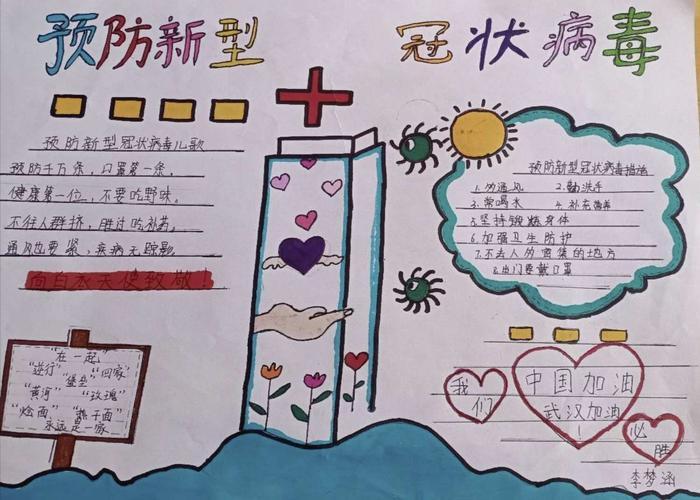 预防新型 冠状病毒
预防新型冠状病毒儿歌
预防千万条，口罩第一条，
健康第一位，不要吃野味。
不往人群挤，胜过吃补药。
通风也要紧，疾病无踪影。
向白衣天使致敬！
预防新型冠状病毒措施
1.勿通风 2.勤洗手
3.常喝水 4.补充营养
5.坚持锻炼身体
6.加强卫生防护
7.不去人员密集的地方
8.出门要戴口罩
"在一起"
"逆行" "堡垒" "回家"
"黄河" "玫瑰"
"烩面" "热干面"
永远是一家
我们
中国加油
武汉加油
！
必胜
李梦涵